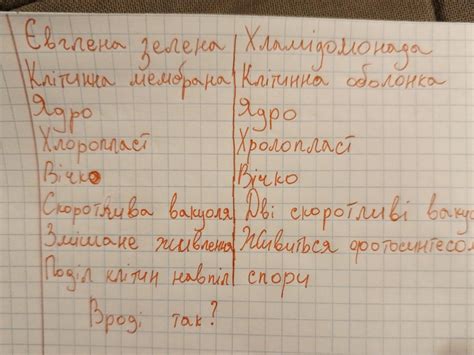 Євглена зелена Хламідомонада
Клітинна мембрана Клітинна оболонка
Ядро Ядро
Хлоропласт Хролопласт
Вічко Вічко
Скоротлива вакуоля Дві скоротливі ваку
Змішане живлення Живиться фотосинтезо
Поділ клітин навпіл спори
Вроді так?